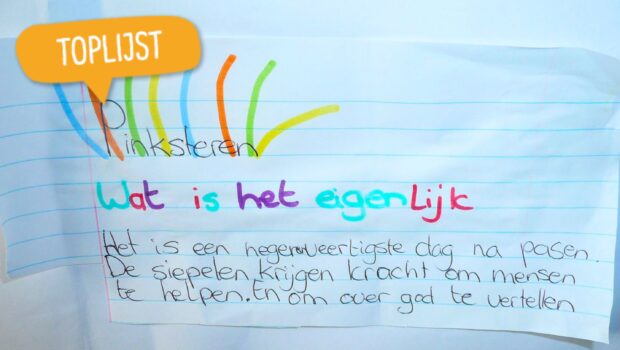 TOPLIJST
Pinksteren
Wat is het eigenlijk
Het is een negenveertigste dag na pasen.
De siepelen krijgen kracht om mensen
te helpen. En om over god te vertellen